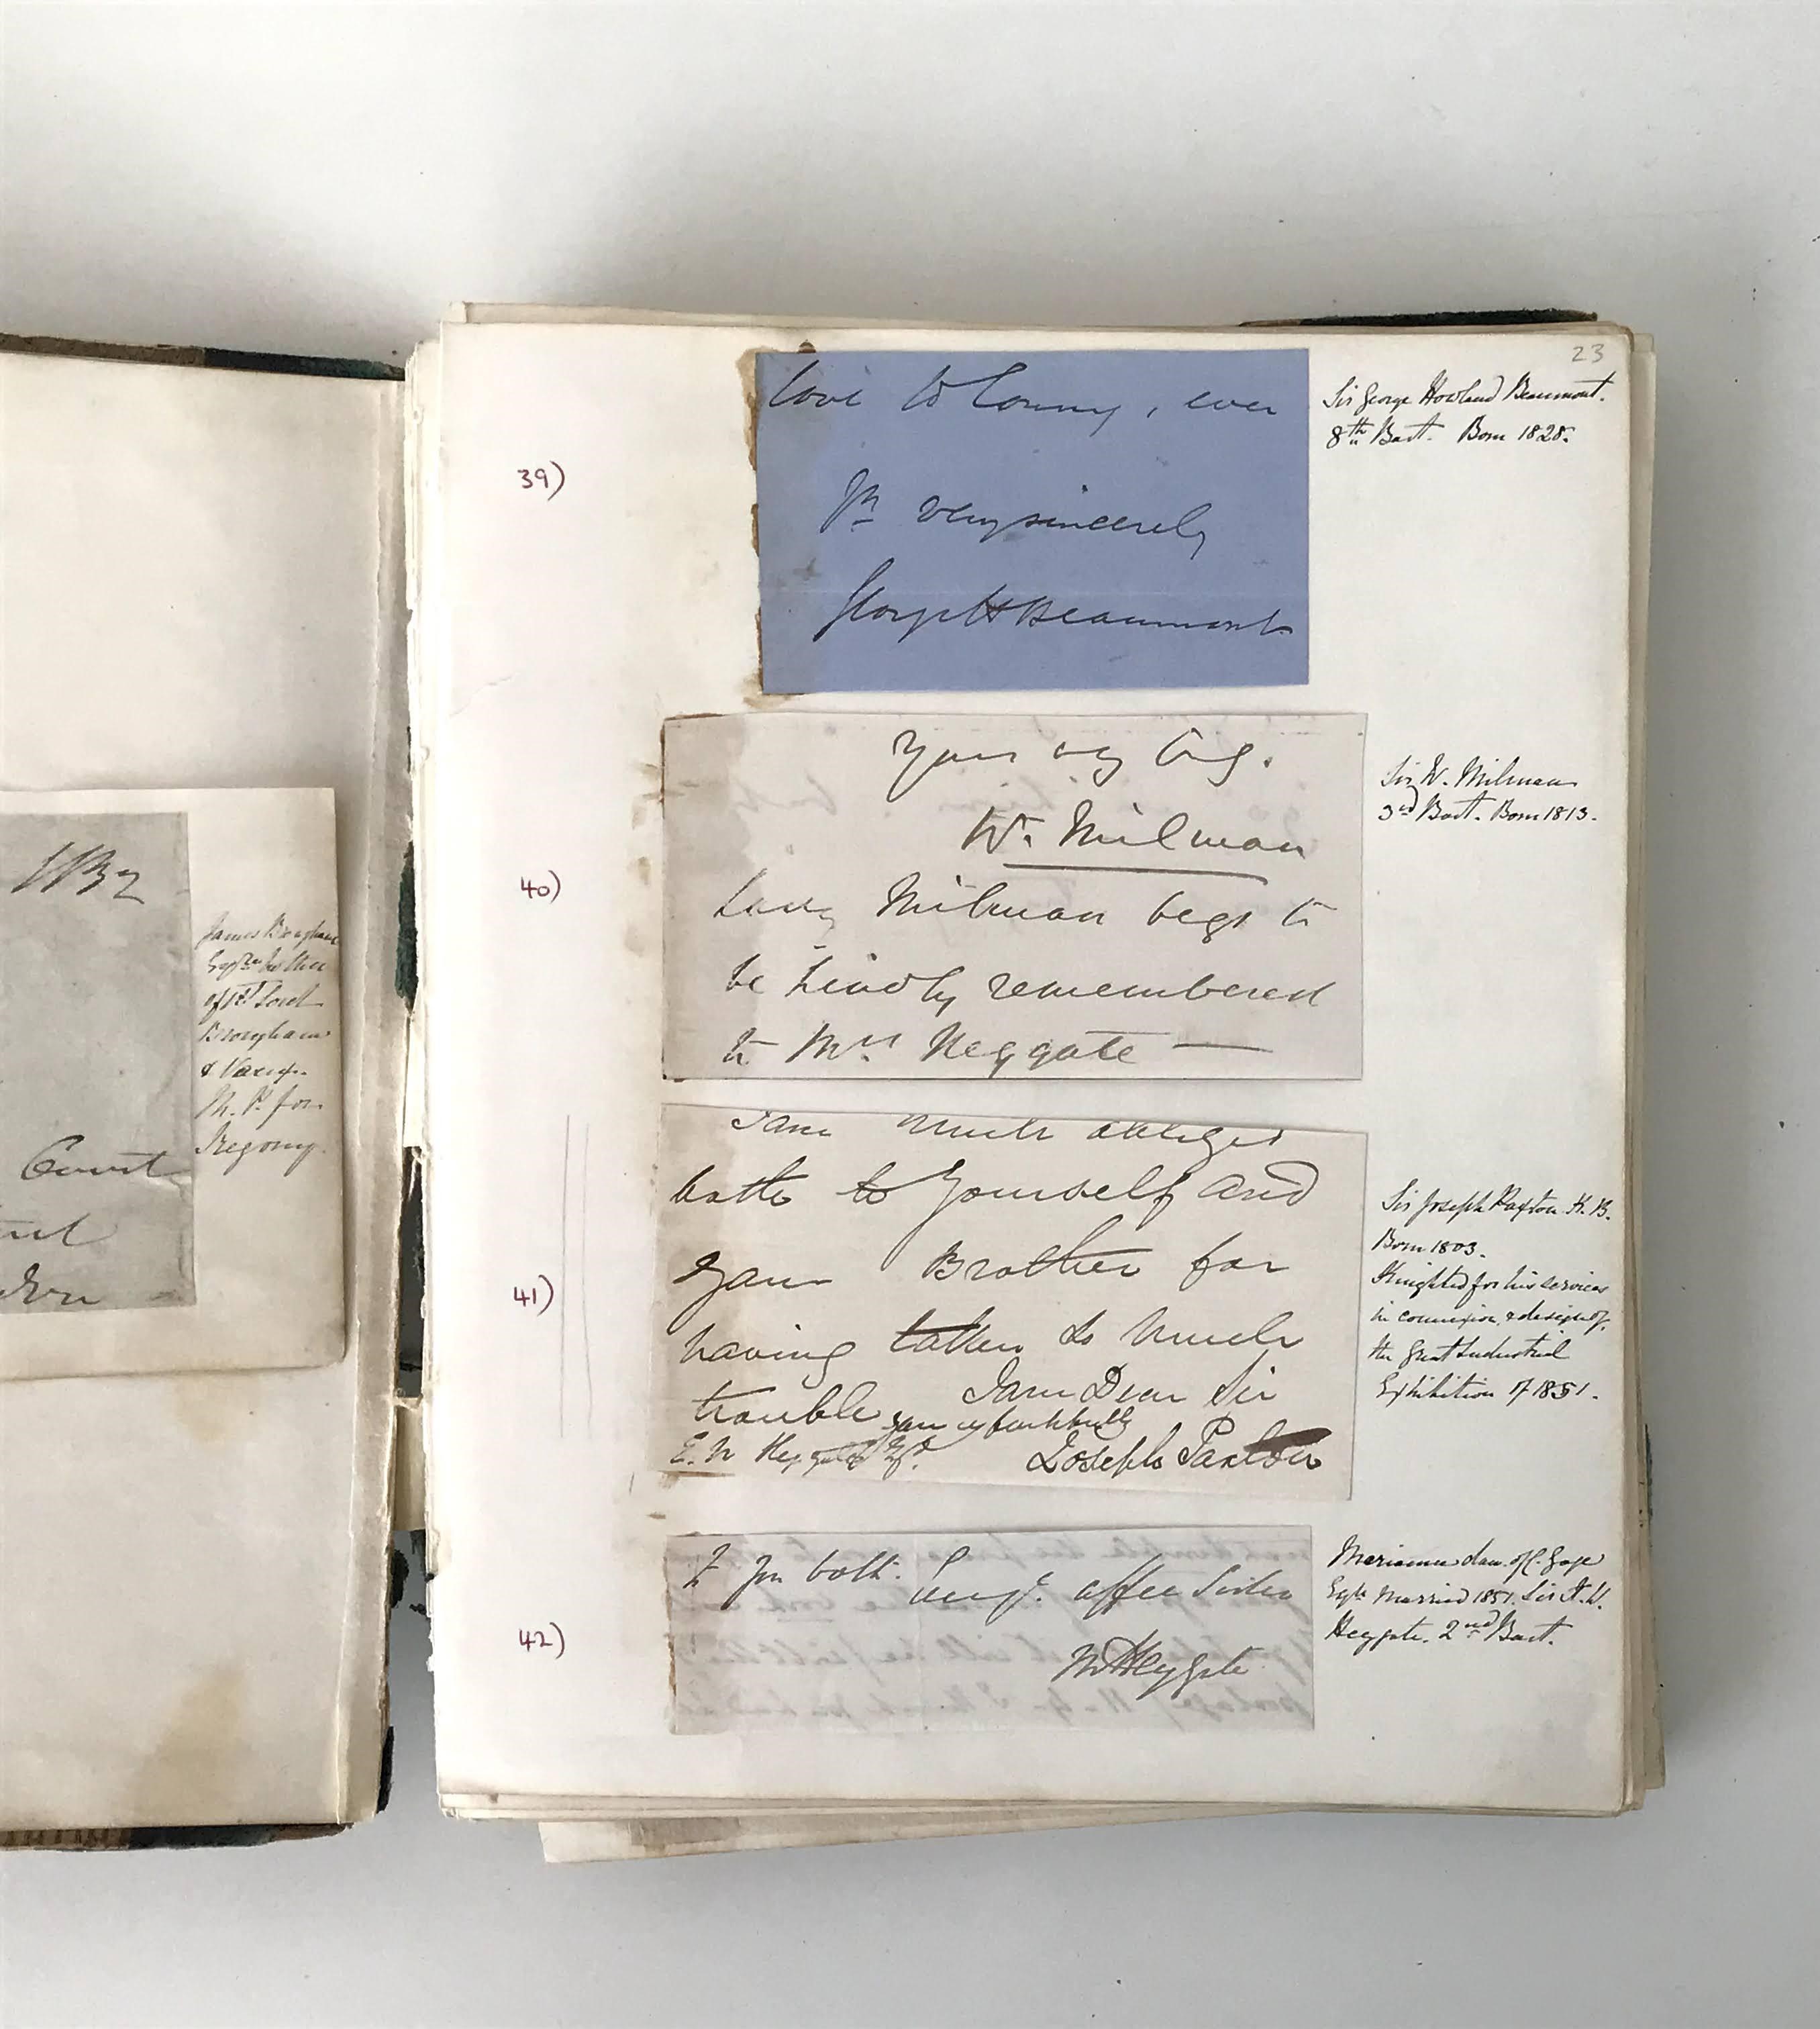 WB2
Court
James Brougham
Esqre brother
of 1st Lord
Brougham
& Vaux.
M.P. for
Tregony.
23
39)
love to Conny, ever
Yrs very sincerely
George H Beaumont
Sir George Howland Beaumont.
8th Bart. Born 1828.
40)
Yours very truly.
W. Milman
Lady Milman begs to
be kindly remembered
to Mrs Heygate —
Sir W. Milman
3rd Bart. Born 1813.
41)
I am much obliged
both to Yourself and
your Brother for
having taken so much
trouble I am Dear Sir
your very faithfully
E. N Heygate Esq.
Joseph Paxton
Sir Joseph Paxton K.B.
Born 1803.
Knighted for his services
in connexion & design of
the Great Industrial
Exhibition of 1851.
42)
to you both. affec Sister
M Heygate
Marianne dau. of C. Gage
Esqre Married 1851. Sir F. W.
Heygate. 2nd Bart.